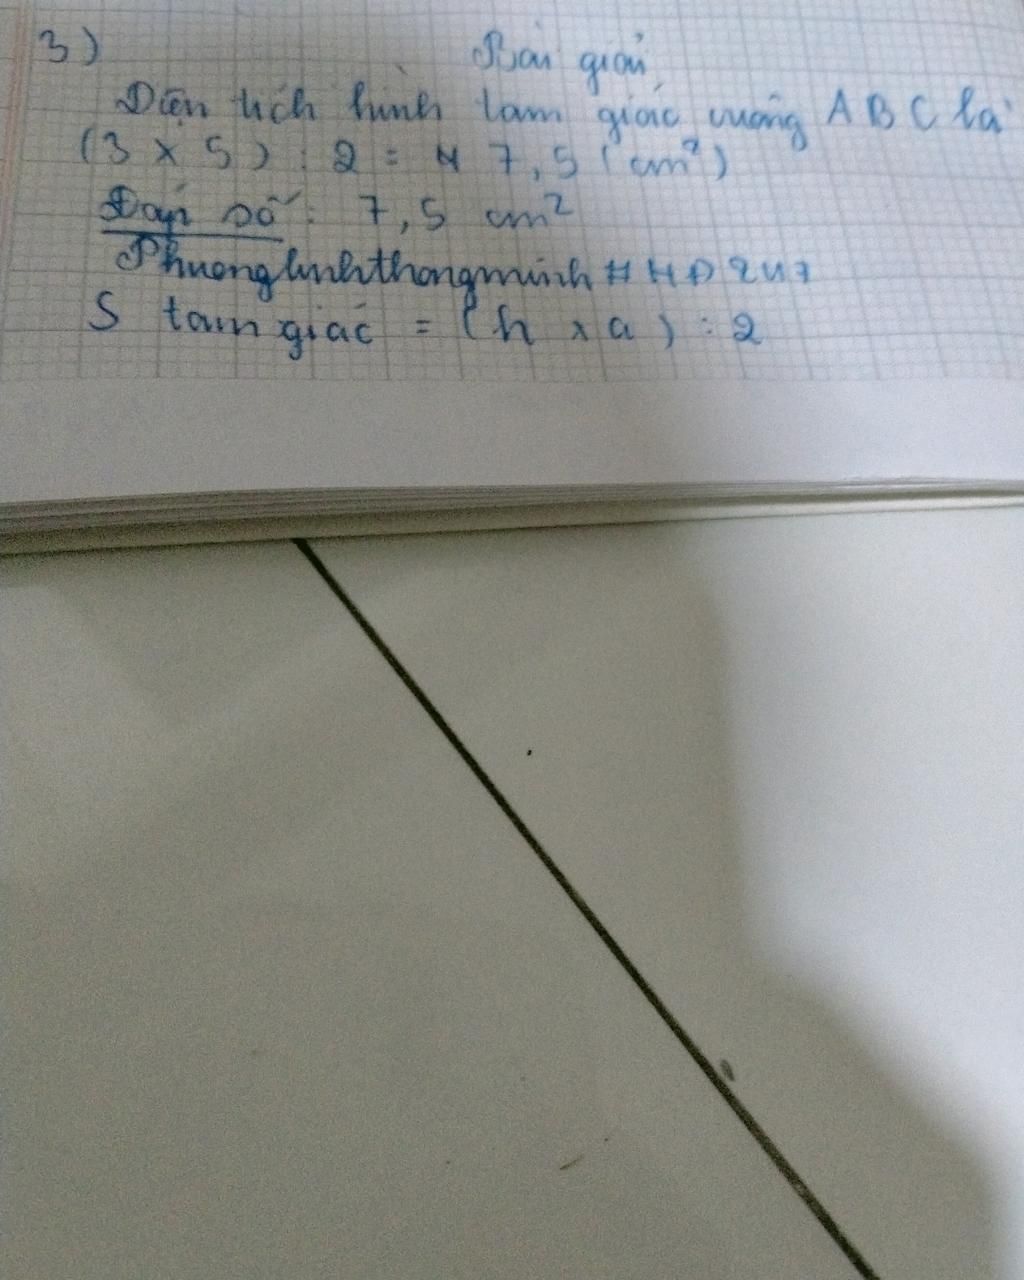 3) Bài giải
Diện tích hình tam giác vuông ABC là
(3 x 5) : 2 = 7,5 (cm²)
Đáp số: 7,5 cm²
Phuonglinhthongminh #HD247
S tam giác = (h x a) : 2